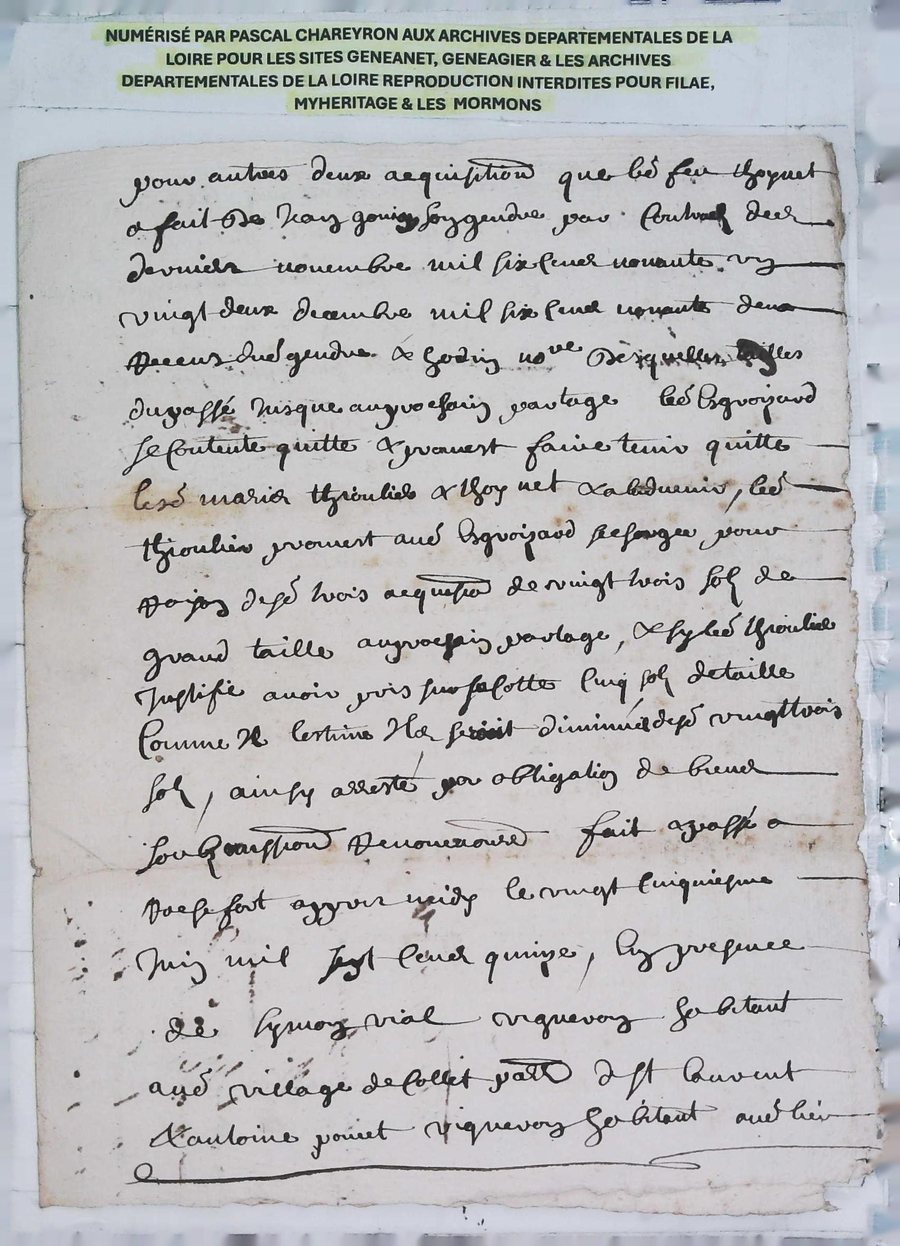 NUMÉRISÉ PAR PASCAL CHAREYRON AUX ARCHIVES DEPARTEMENTALES DE LA
LOIRE POUR LES SITES GENEANET, GENEAGIER & LES ARCHIVES
DEPARTEMENTALES DE LA LOIRE REPRODUCTION INTERDITES POUR FILAE,
MYHERITAGE & LES MORMONS
pour autres deux acquisition que led feu thoynet
a fait de son gendre par Contract des
dernier novembre mil six Cent nonante un
vingt deux decembre mil six Cent nonante deux
gendre & desquelles tailles
du passé Jusque au prochain partage led Esgroizard
se Contente quitte & promest faire tenir quitte
lesd mariés thioulier & thoynet & a ladvenir, led
thioulier promest aud Esgroizard pour
desd trois acquisition de vingt trois sols de
grand taille au prochain partage, & sy led thioulier
Justifie avoir pris sur sa Cotte Cinq sols de taille
Comme Il lestime Il seroit diminué desd vingt trois
sols, ainsy arresté par obligation de biens
soubmission fait & passé a
Rochefort appres midy le vingt Cinquiesme
Juin mil sept Cent quinze, En presence
de symon vial vigneron habitant
aud village de Collet de st laurent
& antoine poncet vigneron habitant aud lieu